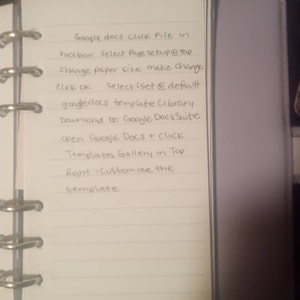 Google docs click File in
toolbar Select Page setup @ Top
Change Paper size make change
click ok Select set @ default
google docs template Library
Download to Google Docs Suite
open Google Docs + click
Templates Gallery in Top
Right - customize the
template